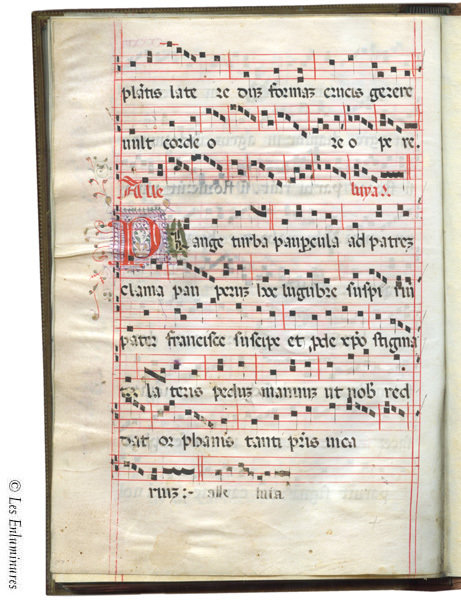 plātis late re diuz formaz crucis gerere
uult corde o re o pe re.
Alle luya:.
Plange turba paupcula ad patrez
clama pau peruz hoc lugubre suspi riū
pater francisce suscipe et pde xpo stigma
ta la teris peduz manuuz ut nob red
dat or phanis tanti pris uica
riuz:- alle luia
© Les Enluminures